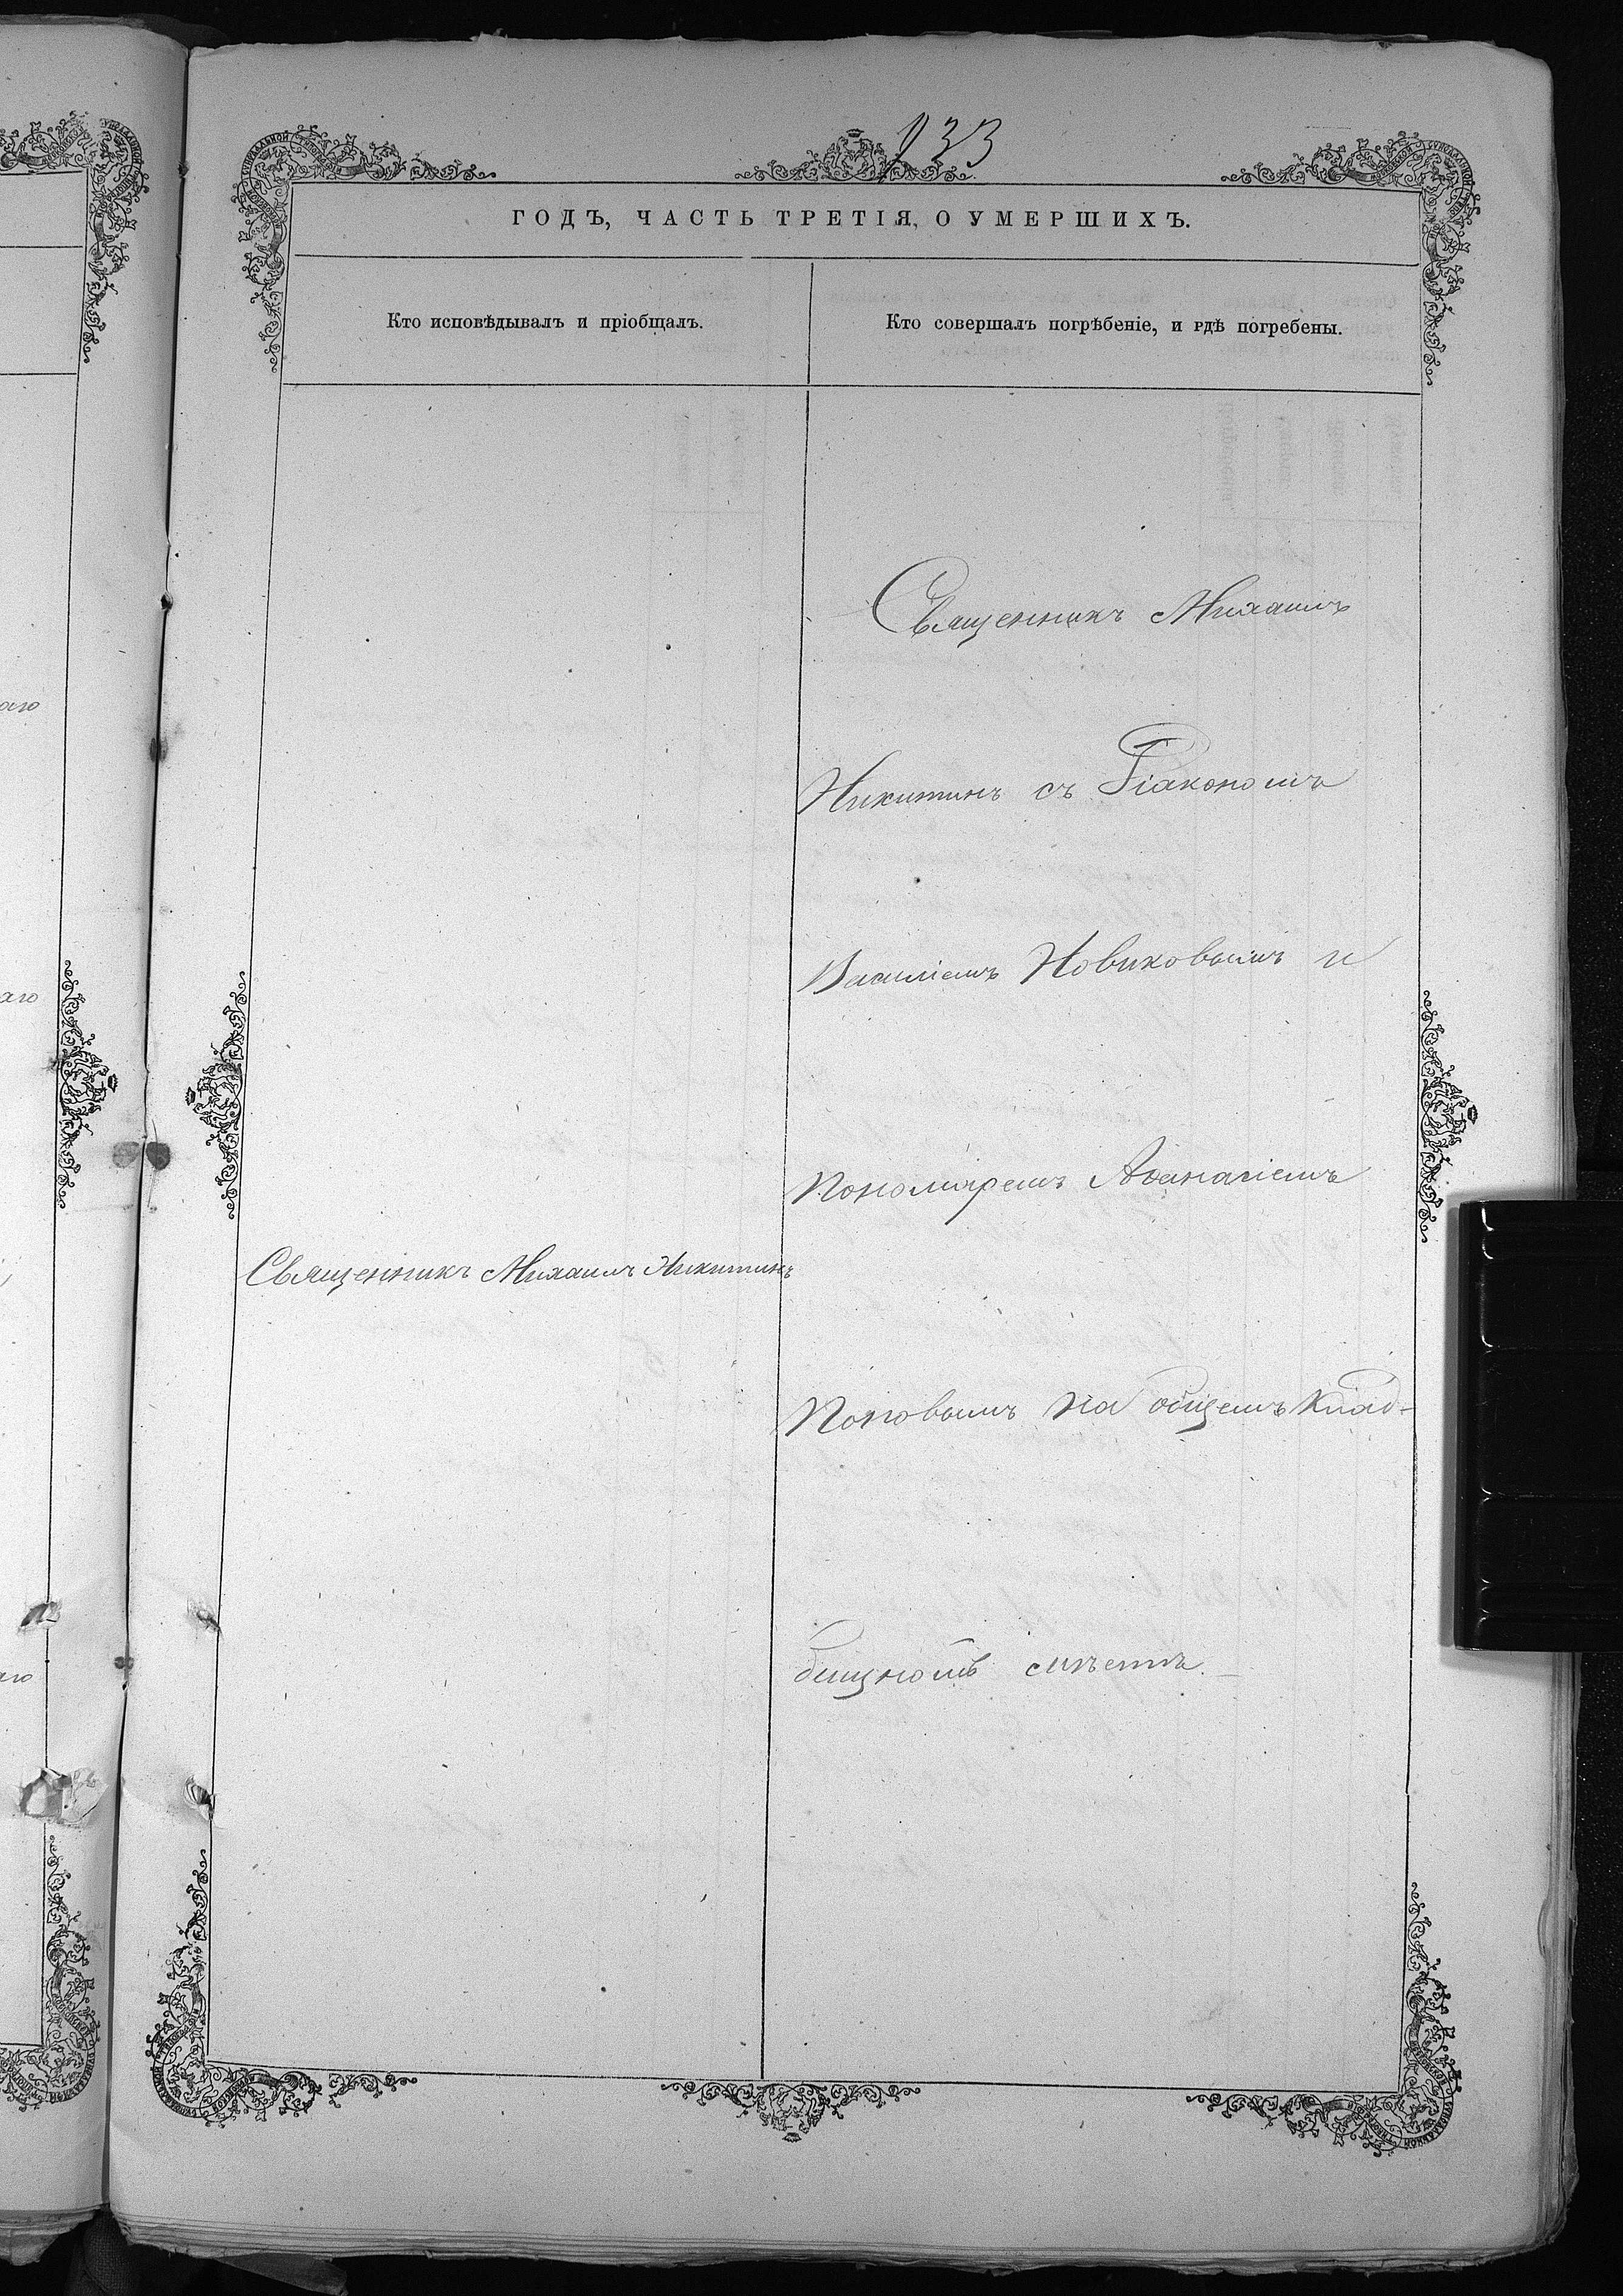 133
ГОДЪ, ЧАСТЬ ТРЕТІЯ, О УМЕРШИХЪ.
Кто исповѣдывалъ и пріобщалъ.
Кто совершалъ погрѣбеніе, и гдѣ погребены.
Священникъ Михаилъ
Никитинъ съ Діакономъ
Василіемъ Новиковымъ и
Пономаремъ Аѳанасіемъ
Священникъ Михаилъ Никитинъ
Поповымъ на общемъ клад-
бищномъ мѣстѣ.
аго
аго